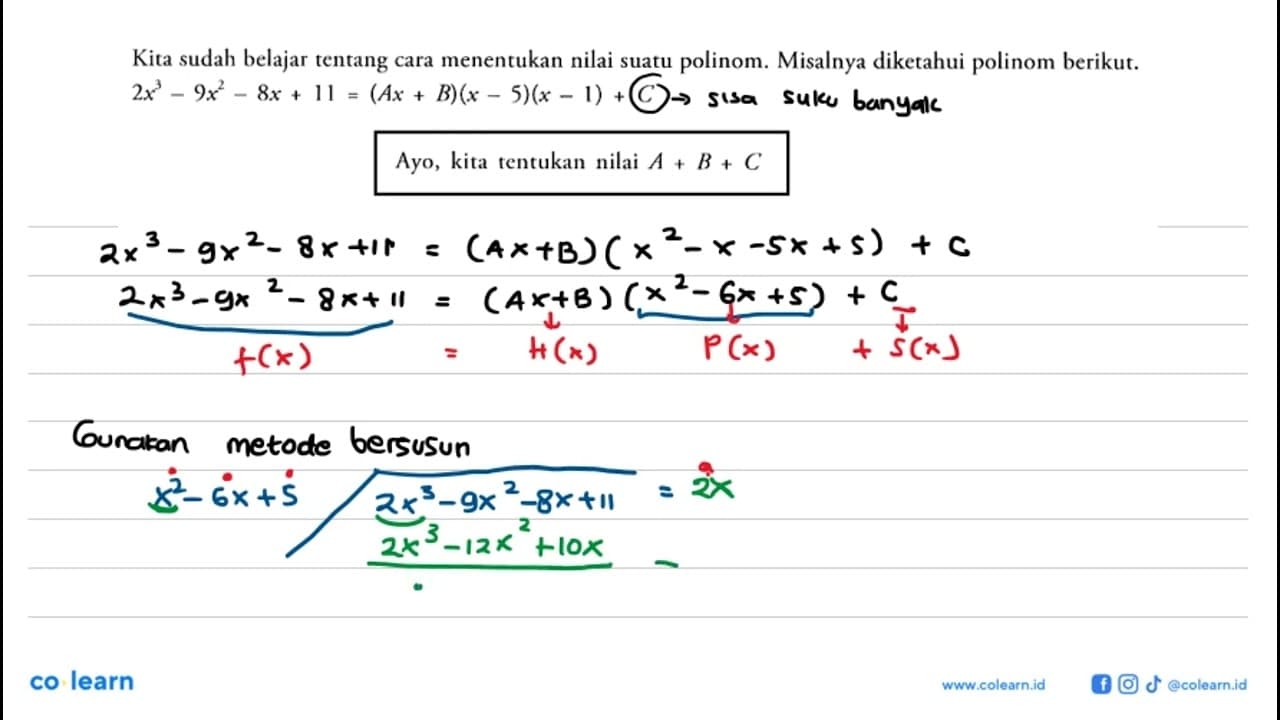 Kita sudah belajar tentang cara menentukan nilai suatu polinom. Misalnya diketahui polinom berikut.
2x³ – 9x² – 8x + 11 = (Ax + B)(x – 5)(x – 1) + C → sisa suku banyak
Ayo, kita tentukan nilai A + B + C
2x³ - 9x² - 8x + 11 = (Ax+B)(x² - x - 5x + 5) + C
2x³ - 9x² - 8x + 11 = (Ax+B)(x² - 6x + 5) + C
f(x) = H(x) P(x) + S(x)
Gunakan metode bersusun
x² - 6x + 5 2x³ - 9x² - 8x + 11 = 2x
2x³ - 12x² + 10x -
co learn
www.colearn.id @colearn.id